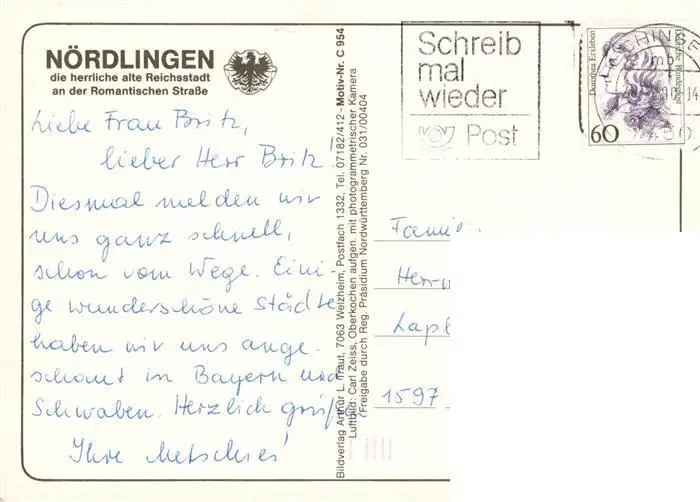 NÖRDLINGEN
die herrliche alte Reichsstadt
an der Romantischen Straße
Liebe Frau Britz,
lieber Herr Britz!
Diesmal melden wir
uns ganz schnell,
schon vom Wege. Eini-
ge wunderschöne Städte
haben wir uns ange-
schaut in Bayern und
Schwaben. Herzlich grüßen
Ihre
Bildverlag Arthur L. Traut, 7063 Welzheim, Postfach 1332, Tel. 07182/412 - Motiv-Nr. C 954
Luftbild: Carl Zeiss, Oberkochen aufgen. mit photogrammetrischer Kamera
Freigabe durch Reg. Präsidium Nordwürttemberg Nr. 031/00404
Schreib
mal
wieder
Post
Dorothea Erxleben
Deutsche Bundespost
60
Fami
Herrn
1597